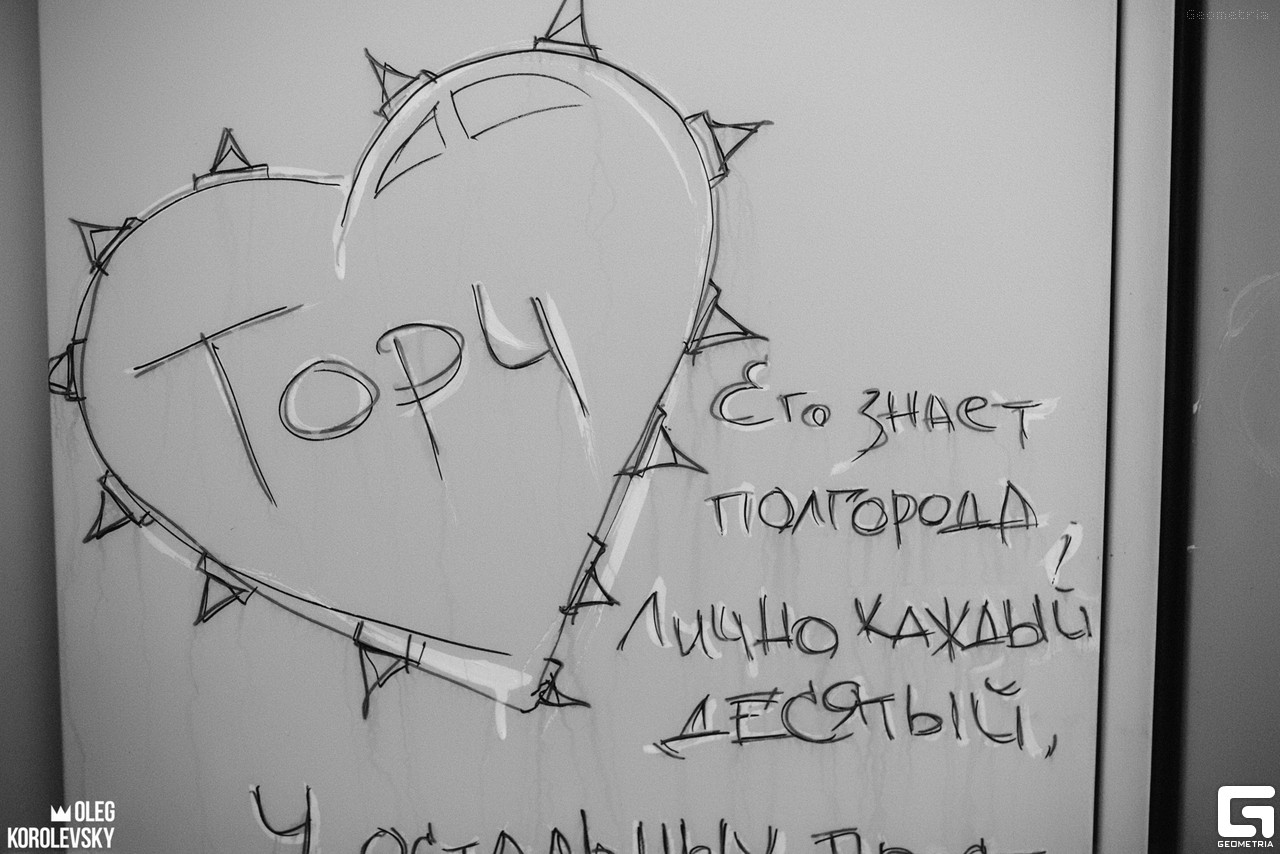 Geometria
ТОРЧ
Его знает
полгорода
Лично каждый
ДЕСЯТЫЙ,
У остальных
OLEG
KOROLEVSKY
GEOMETRIA